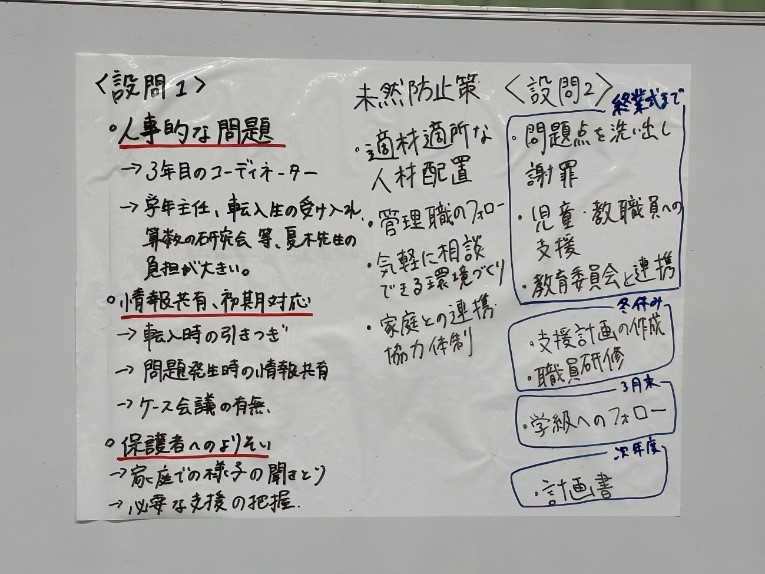 〈設問1〉
○人事的な問題
→3年目のコーディネーター
→学年主任、転入生の受け入れ、
算数の研究会 等、夏木先生の
負担が大きい。
○情報共有、初期対応
→転入時の引きつぎ
→問題発生時の情報共有
→ケース会議の有無、
○保護者へのよりそい
→家庭での様子の聞きとり
→必要な支援の把握.
未然防止策
・適材適所な
人材配置
・管理職のフォロー
・気軽に相談
できる環境づくり
・家庭との連携
協力体制
〈設問2〉
終業式まで
・問題点を洗い出し
謝罪
・児童・教職員への
支援
・教育委員会と連携
冬休み
・支援計画の作成
・職員研修
3月末
・学級へのフォロー
次年度
・計画書